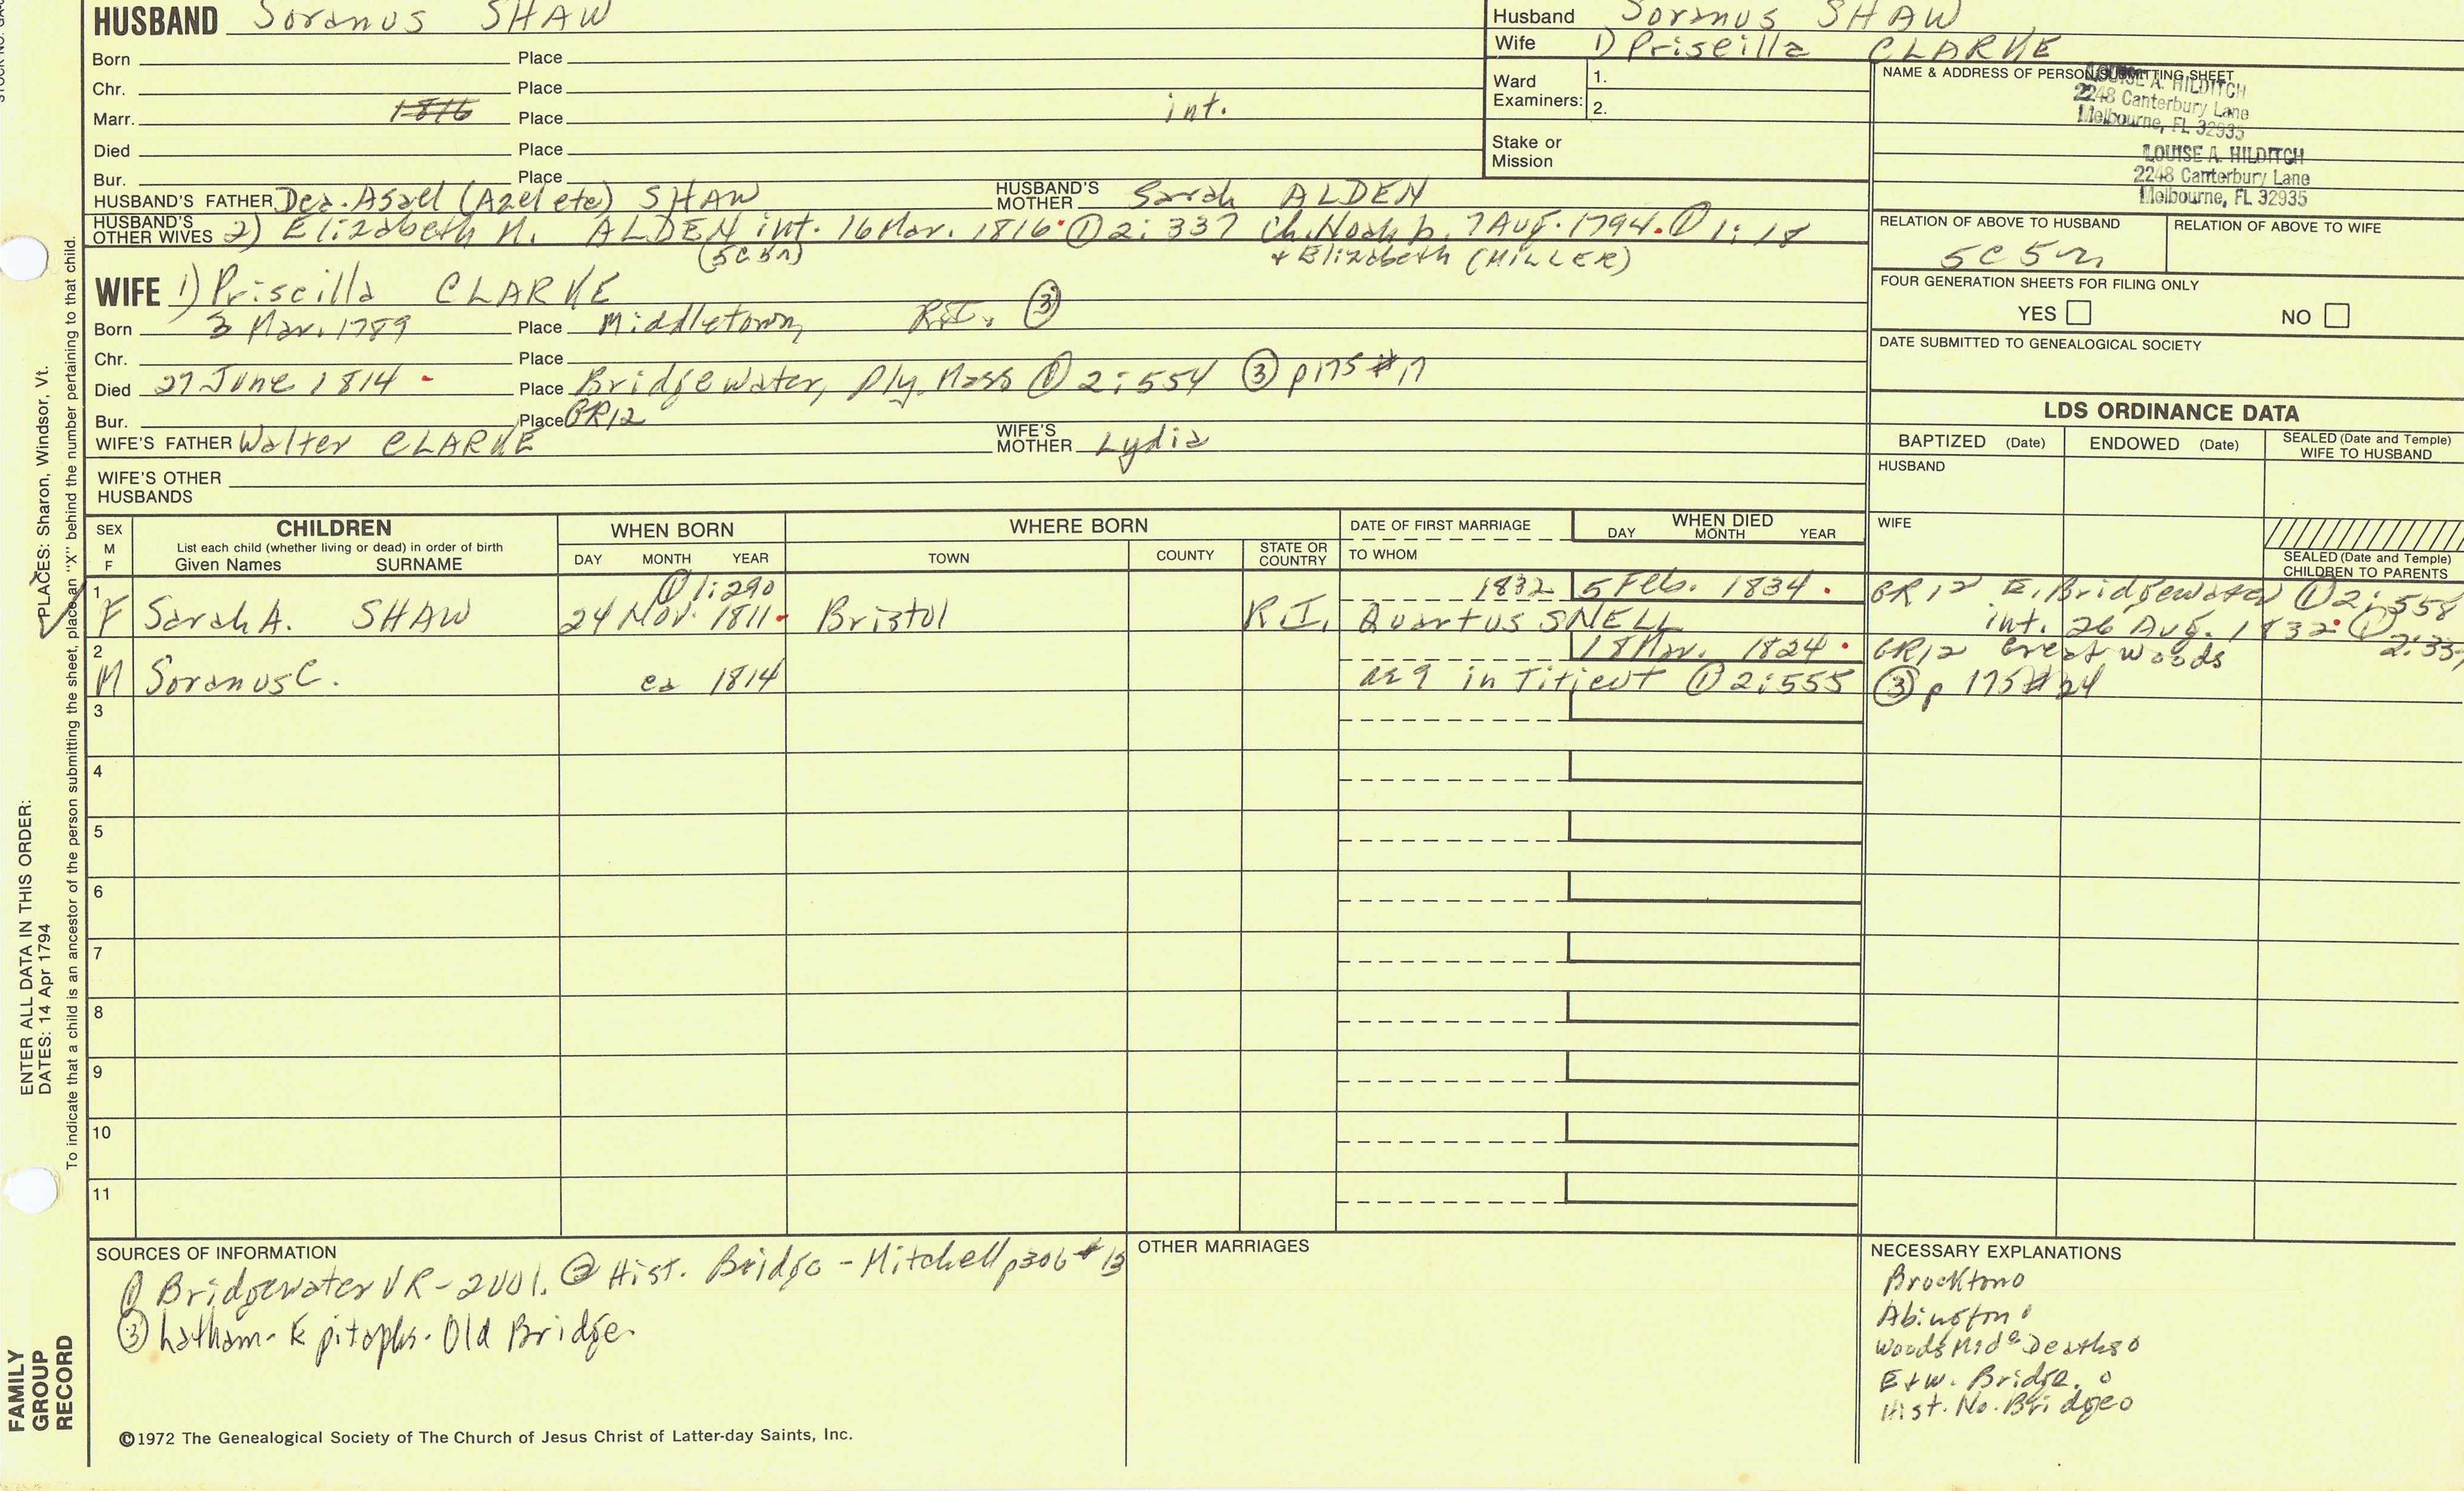 HUSBAND Soranus SHAW
Husband Soranus SHAW
Wife 1) Priscilla CLARKE
Born Place
Chr. Place
Marr. 1816 Place int.
Died Place
Bur. Place
Ward Examiners: 1. 2.
Stake or Mission
NAME & ADDRESS OF PERSON SUBMITTING SHEET
LOUISE A. HILDITCH
2248 Canterbury Lane
Melbourne, FL 32935
LOUISE A. HILDITCH
2248 Canterbury Lane
Melbourne, FL 32935
HUSBAND'S FATHER Dea. Asael (Azel etc) SHAW HUSBAND'S MOTHER Sarah ALDEN
HUSBAND'S OTHER WIVES 2) Elizabeth N. ALDEN int. 16 Mar. 1816 ① 2:337 ch. Noah b. 7 Aug. 1794. ① 1:18
(5C5n) + Elizabeth (MILLER)
RELATION OF ABOVE TO HUSBAND
5C5n
RELATION OF ABOVE TO WIFE
FOUR GENERATION SHEETS FOR FILING ONLY
YES NO
DATE SUBMITTED TO GENEALOGICAL SOCIETY
WIFE 1) Priscilla CLARKE
Born 3 Mar. 1789 Place Middletown, R.I. ③
Chr. Place
Died 27 June 1814 Place Bridgewater, Ply. Mass ① 2:554 ③ p175 #17
Bur. Place GR12
WIFE'S FATHER Walter CLARKE WIFE'S MOTHER Lydia
WIFE'S OTHER HUSBANDS
LDS ORDINANCE DATA
BAPTIZED (Date) ENDOWED (Date) SEALED (Date and Temple) WIFE TO HUSBAND
HUSBAND
WIFE
SEALED (Date and Temple) CHILDREN TO PARENTS
SEX M F
CHILDREN
List each child (whether living or dead) in order of birth
Given Names SURNAME
WHEN BORN
DAY MONTH YEAR
WHERE BORN
TOWN COUNTY STATE OR COUNTRY
DATE OF FIRST MARRIAGE
TO WHOM
WHEN DIED
DAY MONTH YEAR
1 ① 1:290 1832 5 Feb. 1834. GR12 E. Bridgewater ① 2:558
F Sarah A. SHAW 24 Nov. 1811 Bristol R.I. Quartus SNELL int. 26 Aug. 1832 ① 2:33
2 18 Mar. 1824. GR12 Great Woods
M Soranus C. ca 1814 ae 9 in Titicut ① 2:555 ③ p 175 #24
3
4
5
6
7
8
9
10
11
SOURCES OF INFORMATION
① Bridgewater VR-2vol. ② Hist. Bridge - Mitchell p306 #13
③ Latham-Epitaphs-Old Bridge.
OTHER MARRIAGES
NECESSARY EXPLANATIONS
Brockton o
Abington o
Woods Mid Deaths o
E+W. Bridge. o
Hist. No. Bridge o
©1972 The Genealogical Society of The Church of Jesus Christ of Latter-day Saints, Inc.
FAMILY GROUP RECORD
ENTER ALL DATA IN THIS ORDER:
DATES: 14 Apr 1794
PLACES: Sharon, Windsor, Vt.
To indicate that a child is an ancestor of the person submitting the sheet, place an "X" behind the number pertaining to that child.
STOCK NO.